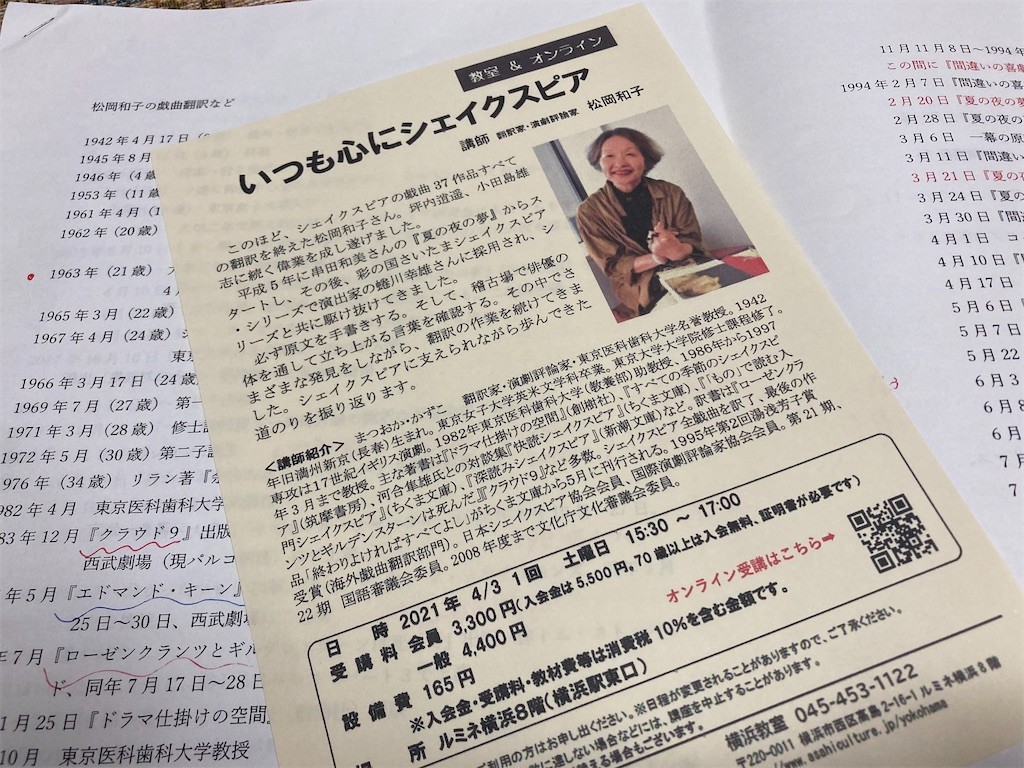 松岡和子の戯曲翻訳など
1942年4月17日
1945年8月
1946年（4歳
1953年（11歳
1961年4月
1962年（20歳）
1963年（21歳）
1965年3月（22歳）
1967年4月（24歳）
東京
1966年3月17日（24歳
1969年7月（27歳）第一
1971年3月（28歳）修士
1972年5月（30歳）第二子
976年（34歳）リラン著『
982年4月 東京医科歯科大学
83年12月『クラウド9』出版
西武劇場（現パルコ
年5月『エドマンド・キーン』
25日～30日、西武劇場
年7月『ローゼンクランツとギル
ド、同年7月17日～28日
1月25日『ドラマ仕掛けの空間』
10月 東京医科歯科大学教授
教室 & オンライン
いつも心にシェイクスピア
講師 翻訳家・演劇評論家 松岡和子
このほど、シェイクスピアの戯曲37作品すべて
の翻訳を終えた松岡和子さん。坪内逍遥、小田島雄
志に続く偉業を成し遂げました。
平成5年に串田和美さんの『夏の夜の夢』からス
タートし、その後、彩の国さいたまシェイクスピア
・シリーズで演出家の蜷川幸雄さんに採用され、シ
リーズと共に駆け抜けてきました。
必ず原文を手書きする。そして、稽古場で俳優の
体を通して立ち上がる言葉を確認する。その中でさ
まざまな発見をしながら、翻訳の作業を続けてきま
した。シェイクスピアに支えられながら歩んできた
道のりを振り返ります。
＜講師紹介＞ まつおか・かずこ 翻訳家・演劇評論家・東京医科歯科大学名誉教授。1942
年旧満州新京（長春）生まれ。東京女子大学英米文学科卒業。東京大学大学院修士課程修了。
専攻は17世紀イギリス演劇。1982年東京医科歯科大学（教養部）助教授、1986年から1997
年3月まで教授。主な著書は『ドラマ仕掛けの空間』（創樹社）、『すべての季節のシェイクスピ
ア』（筑摩書房）、河合隼雄氏との対談集『快読シェイクスピア』（ちくま文庫）、『「もの」で読む入
門シェイクスピア』（ちくま文庫）、『深読みシェイクスピア』（新潮文庫）など。訳書は『ローゼンクラ
ンツとギルデンスターンは死んだ』『クラウド9』など多数。シェイクスピア全戯曲を訳了、最後の作
品『終わりよければすべてよし』がちくま文庫から5月に刊行される。1995年第2回湯浅芳子賞
受賞（海外戯曲翻訳部門）。日本シェイクスピア協会会員、国際演劇評論家協会会員。第21期、
22期 国語審議会委員。2008年度まで文化庁文化審議会委員。
日 時 2021年 4/3 1回 土曜日 15:30 ～ 17:00
受 講 料 会員 3,300円（入会金は5,500円。70歳以上は入会無料、証明書が必要です）
一般 4,400円
オンライン受講はこちら➡
設 備 費 165円
※入会金・受講料・教材費等は消費税10%を含む金額です。
場 所 ルミネ横浜8階（横浜駅東口）
ご利用の方はお申し出ください。※日程が変更されることがありますので、ご了承ください。
に達しない場合などには、講座を中止することがあります。
える場合もございます。
横浜教室 045-453-1122
〒220-0011 横浜市西区高島2-16-1 ルミネ横浜8階
www.asahiculture.jp/yokohama
11月11月8日～1994年
この間に『間違いの喜劇
1994年2月7日『間違いの
2月20日『夏の夜の夢
2月28日『夏の夜の
3月6日 一幕の原
3月11日『間違い
3月21日『夏の夜
3月24日『夏の
3月30日『間
4月1日 コ
4月10日『
4月17日
5月6日『
5月7日
5月22
6月3
6月8
6
7
7